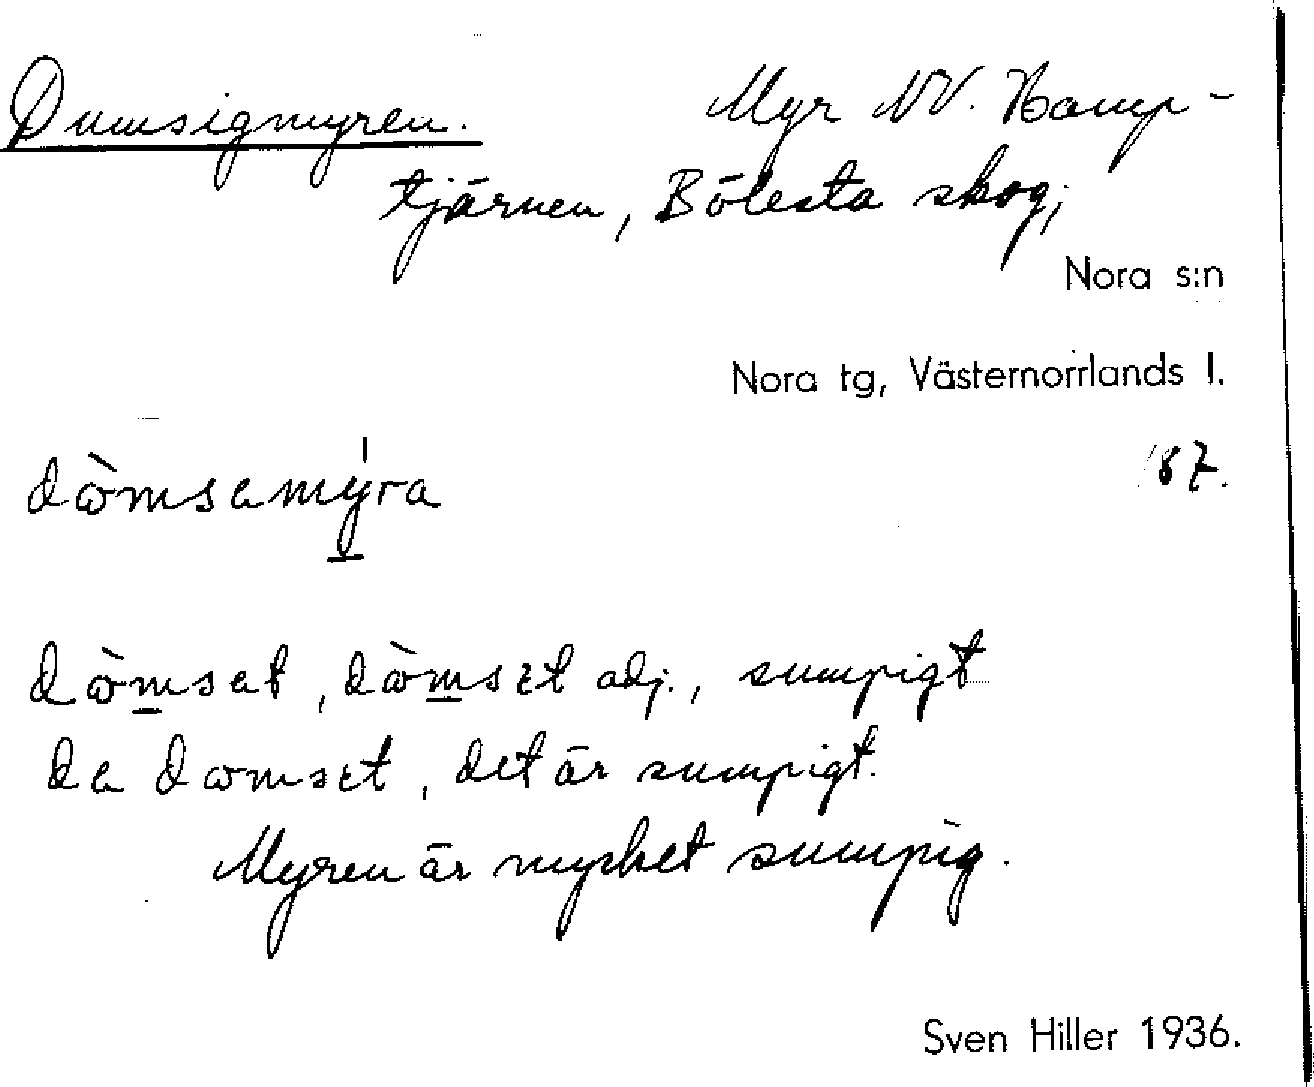 Dumsigmyren. Myr NV. Hamp-
tjärnen, Bölesta skog;
Nora s:n
Nora tg, Västernorrlands l.
87.
dὼmsamy̠ra
dὼm̠sat, dὼm̠sεt adj., sumpigt
da dωmsεt, det är sumpigt.
Myren är mycket sumpig.
Sven Hiller 1936.